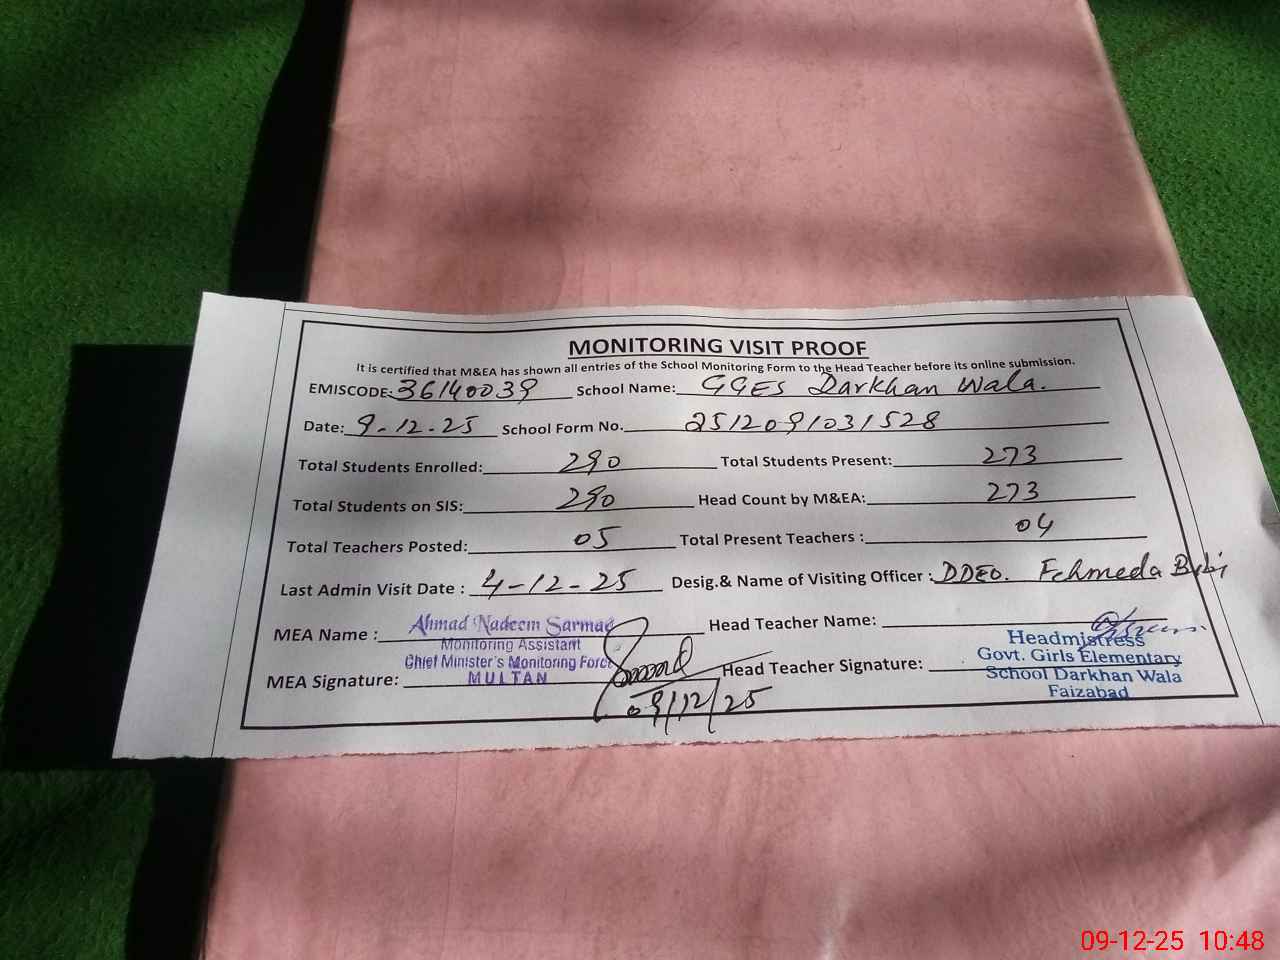 MONITORING VISIT PROOF
It is certified that M&EA has shown all entries of the School Monitoring Form to the Head Teacher before its online submission.
EMISCODE: 36140039 School Name: GGES Darkhan Wala.
Date: 9-12-25 School Form No. 2512091031528
Total Students Enrolled: 290 Total Students Present: 273
Total Students on SIS: 290 Head Count by M&EA: 273
Total Teachers Posted: 05 Total Present Teachers : 04
Last Admin Visit Date : 4-12-25 Desig.& Name of Visiting Officer : DDEO. Fehmeda Bibi
MEA Name : Ahmad Nadeem Sarmad Head Teacher Name:
Monitoring Assistant Headmistress
Chief Minister's Monitoring Force Govt. Girls Elementary
MEA Signature: MULTAN Head Teacher Signature: School Darkhan Wala
09/12/25 Faizabad
09-12-25 10:48